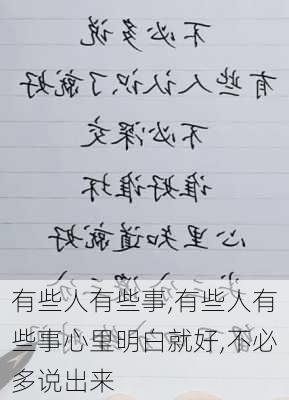 不必多说
有些人认识了就好
不必深交
谁好谁坏
心里知道就好
有些人有些事,有些人有
些事心里明白就好,不必
多说出来